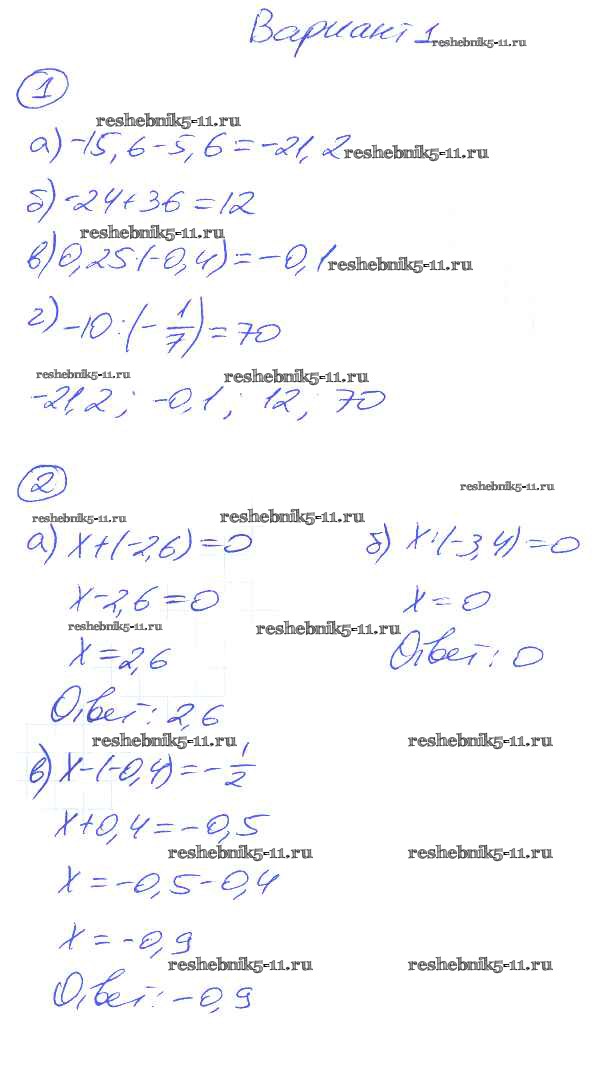 Вариант 1 reshebnik5-11.ru
1
reshebnik5-11.ru
а) -15,6-5,6=-21,2 reshebnik5-11.ru
б) -24+36=12
reshebnik5-11.ru
в) 0,25·(-0,4)=-0,1 reshebnik5-11.ru
г) -10:(-1/7)=70
reshebnik5-11.ru reshebnik5-11.ru
-21,2; -0,1; 12; 70
2
reshebnik5-11.ru
reshebnik5-11.ru reshebnik5-11.ru
а) x+(-2,6)=0
x-2,6=0
reshebnik5-11.ru reshebnik5-11.ru
x=2,6
Ответ: 2,6
б) x:(-3,4)=0
x=0
Ответ: 0
reshebnik5-11.ru reshebnik5-11.ru
в) x-(-0,4)=-1/2
x+0,4=-0,5
reshebnik5-11.ru reshebnik5-11.ru
x=-0,5-0,4
x=-0,9
reshebnik5-11.ru reshebnik5-11.ru
Ответ: -0,9